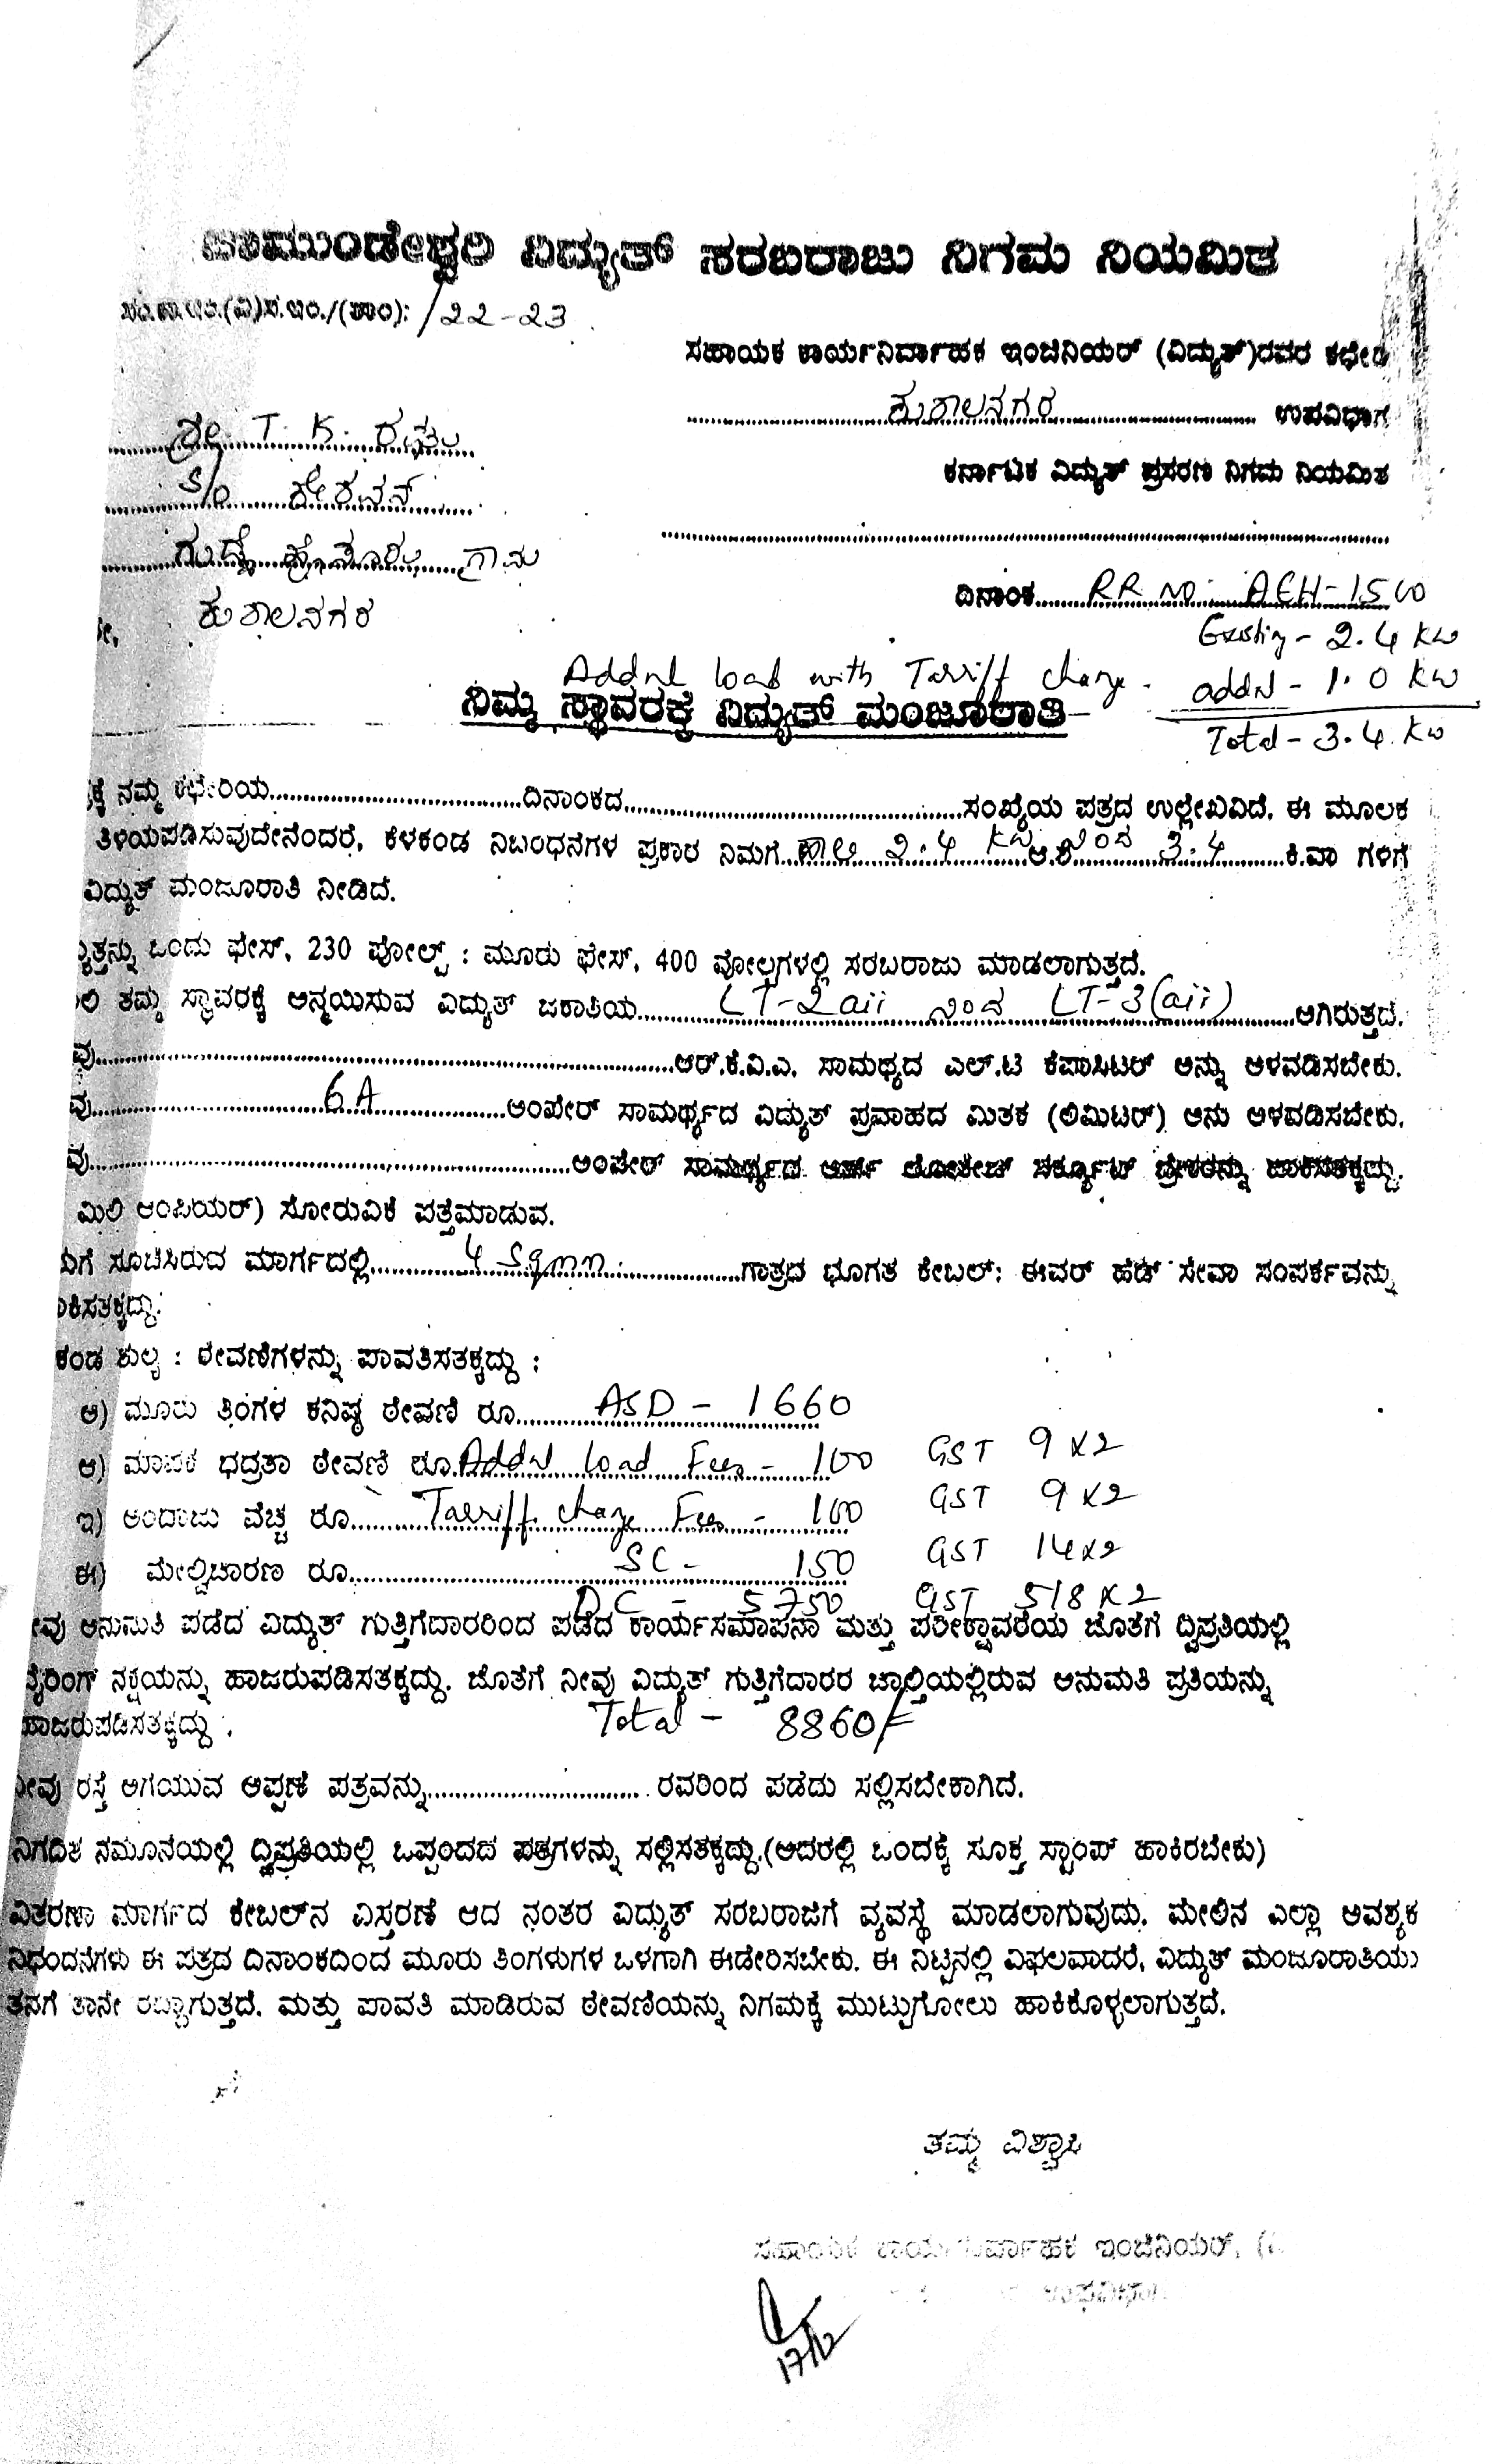 ಚಾಮುಂಡೇಶ್ವರಿ ವಿದ್ಯುತ್ ಸರಬರಾಜು ನಿಗಮ ನಿಯಮಿತ
/22-23
ಸಹಾಯಕ ಕಾರ್ಯನಿರ್ವಾಹಕ ಇಂಜಿನಿಯರ್ (ವಿದ್ಯುತ್)ರವರ ಕಛೇರಿ
ಕುಶಾಲನಗರ ಉಪವಿಭಾಗ
ಶ್ರೀ T. K.
ಕರ್ನಾಟಕ ವಿದ್ಯುತ್ ಪ್ರಸರಣ ನಿಗಮ ನಿಯಮಿತ
S/o
ಗುಡ್ಡೆ ಹೊಸೂರು ಗ್ರಾಮ
ಕುಶಾಲನಗರ
ದಿನಾಂಕ RR No: AEH-1500
Existing - 2.4 KW
Addnl load with Tariff change - addnl - 1.0 KW
ನಿಮ್ಮ ಸ್ಥಾವರಕ್ಕೆ ವಿದ್ಯುತ್ ಮಂಜೂರಾತಿ
Total - 3.4 KW
ನಮ್ಮ ಕಛೇರಿಯ..........ದಿನಾಂಕದ..........ಸಂಖ್ಯೆಯ ಪತ್ರದ ಉಲ್ಲೇಖವಿದೆ. ಈ ಮೂಲಕ
ತಿಳಿಯಪಡಿಸುವುದೇನೆಂದರೆ, ಕೆಳಕಂಡ ನಿಬಂಧನೆಗಳ ಪ್ರಕಾರ ನಿಮಗೆ 2.4 KW ಅ.ಶ 3.4 ಕಿ.ವಾ ಗಳಿಗೆ
ವಿದ್ಯುತ್ ಮಂಜೂರಾತಿ ನೀಡಿದೆ.
ಒಂದು ಫೇಸ್, 230 ವೋಲ್ಟ್ : ಮೂರು ಫೇಸ್, 400 ವೋಲ್ಟಗಳಲ್ಲಿ ಸರಬರಾಜು ಮಾಡಲಾಗುತ್ತದೆ.
ತಮ್ಮ ಸ್ಥಾವರಕ್ಕೆ ಅನ್ವಯಿಸುವ ವಿದ್ಯುತ್ ಜಕಾತಿಯ LT-2aii ನಿಂದ LT-3(aii) ಆಗಿರುತ್ತದೆ.
ವು..........ಆರ್.ಕೆ.ವಿ.ಎ. ಸಾಮಥ್ಯದ ಎಲ್.ಟಿ ಕೆಪಾಸಿಟರ್ ಅನ್ನು ಅಳವಡಿಸಬೇಕು.
ವು 6A ಅಂಪೇರ್ ಸಾಮರ್ಥ್ಯದ ವಿದ್ಯುತ್ ಪ್ರವಾಹದ ಮಿತಕ (ಲಿಮಿಟರ್) ಅನು ಅಳವಡಿಸಬೇಕು.
ವು..........ಅಂಪೇರ್ ಸಾಮರ್ಥ್ಯದ ಅರ್ತ್ ಲೀಕೇಜ್ ಸರ್ಕ್ಯೂಟ್ ಬ್ರೇಕರನ್ನು ಹಾಕಿಸತಕ್ಕದ್ದು.
ಮಿಲಿ ಆಂಪಿಯರ್) ಸೋರುವಿಕೆ ಪತ್ತೆಮಾಡುವ.
ಸೂಚಿಸಿರುವ ಮಾರ್ಗದಲ್ಲಿ 4 Sqmm. ಗಾತ್ರದ ಭೂಗತ ಕೇಬಲ್: ಈವರ್ ಹೆಡ್ ಸೇವಾ ಸಂಪರ್ಕವನ್ನು
ಕಿಸತಕ್ಕದ್ದು.
ಕಂಡ ಶುಲ್ಕ : ಠೇವಣಿಗಳನ್ನು ಪಾವತಿಸತಕ್ಕದ್ದು :
ಅ) ಮೂರು ತಿಂಗಳ ಕನಿಷ್ಠ ಠೇವಣಿ ರೂ ASD - 1660
ಆ) ಮಾಪಕ ಭದ್ರತಾ ಠೇವಣಿ ರೂ. Addnl load Fees - 100 GST 9x2
ಇ) ಅಂದಾಜು ವೆಚ್ಚ ರೂ Tariff change Fees - 100 GST 9x2
ಈ) ಮೇಲ್ವಿಚಾರಣ ರೂ SC - 150 GST 14x2
DC - 5750 GST 518x2
ನೀವು ಅನುಮತಿ ಪಡೆದ ವಿದ್ಯುತ್ ಗುತ್ತಿಗೆದಾರರಿಂದ ಪಡೆದ ಕಾರ್ಯಸಮಾಪನಾ ಮತ್ತು ಪರೀಕ್ಷಾವರೆಯ ಜೊತೆಗೆ ದ್ವಿಪ್ರತಿಯಲ್ಲಿ
ವೈರಿಂಗ್ ನಕ್ಷೆಯನ್ನು ಹಾಜರುಪಡಿಸತಕ್ಕದ್ದು. ಜೊತೆಗೆ ನೀವು ವಿದ್ಯುತ್ ಗುತ್ತಿಗೆದಾರರ ಚಾಲ್ತಿಯಲ್ಲಿರುವ ಅನುಮತಿ ಪ್ರತಿಯನ್ನು
ಹಾಜರುಪಡಿಸತಕ್ಕದ್ದು. Total - 8860/-
ನೀವು ರಸ್ತೆ ಅಗೆಯುವ ಅಪ್ಪಣೆ ಪತ್ರವನ್ನು..........ರವರಿಂದ ಪಡೆದು ಸಲ್ಲಿಸಬೇಕಾಗಿದೆ.
ನಿಗದಿತ ನಮೂನೆಯಲ್ಲಿ ದ್ವಿಪ್ರತಿಯಲ್ಲಿ ಒಪ್ಪಂದದ ಪತ್ರಗಳನ್ನು ಸಲ್ಲಿಸತಕ್ಕದ್ದು.(ಅದರಲ್ಲಿ ಒಂದಕ್ಕೆ ಸೂಕ್ತ ಸ್ಟಾಂಪ್ ಹಾಕಿರಬೇಕು)
ವಿತರಣಾ ಮಾರ್ಗದ ಕೇಬಲ್‌ನ ವಿಸ್ತರಣೆ ಆದ ನಂತರ ವಿದ್ಯುತ್ ಸರಬರಾಜಿಗೆ ವ್ಯವಸ್ಥೆ ಮಾಡಲಾಗುವುದು. ಮೇಲಿನ ಎಲ್ಲಾ ಅವಶ್ಯಕ
ನಿಭಂದನೆಗಳು ಈ ಪತ್ರದ ದಿನಾಂಕದಿಂದ ಮೂರು ತಿಂಗಳುಗಳ ಒಳಗಾಗಿ ಈಡೇರಿಸಬೇಕು. ಈ ನಿಟ್ಟನಲ್ಲಿ ವಿಫಲವಾದರೆ, ವಿದ್ಯುತ್ ಮಂಜೂರಾತಿಯು
ತನಗೆ ತಾನೇ ರದ್ದಾಗುತ್ತದೆ. ಮತ್ತು ಪಾವತಿ ಮಾಡಿರುವ ಠೇವಣಿಯನ್ನು ನಿಗಮಕ್ಕೆ ಮುಟ್ಟುಗೋಲು ಹಾಕಿಕೊಳ್ಳಲಾಗುತ್ತದೆ.
ತಮ್ಮ ವಿಶ್ವಾಸಿ
ಸಹಾಯಕ ಕಾರ್ಯನಿರ್ವಾಹಕ ಇಂಜಿನಿಯರ್,
ಉಪವಿಭಾಗ
17/12